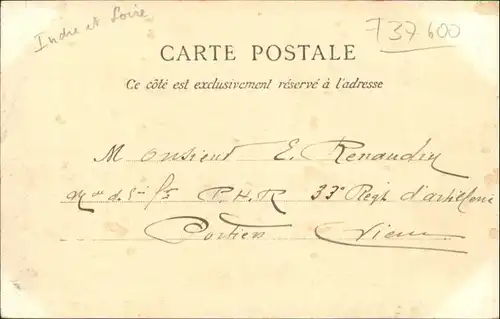 Indre et Loire
737600
CARTE POSTALE
Ce côté est exclusivement réservé à l'adresse
Monsieur E. Renaudin
P.H.R 33e Régt d'artillerie
Poitiers Vienne